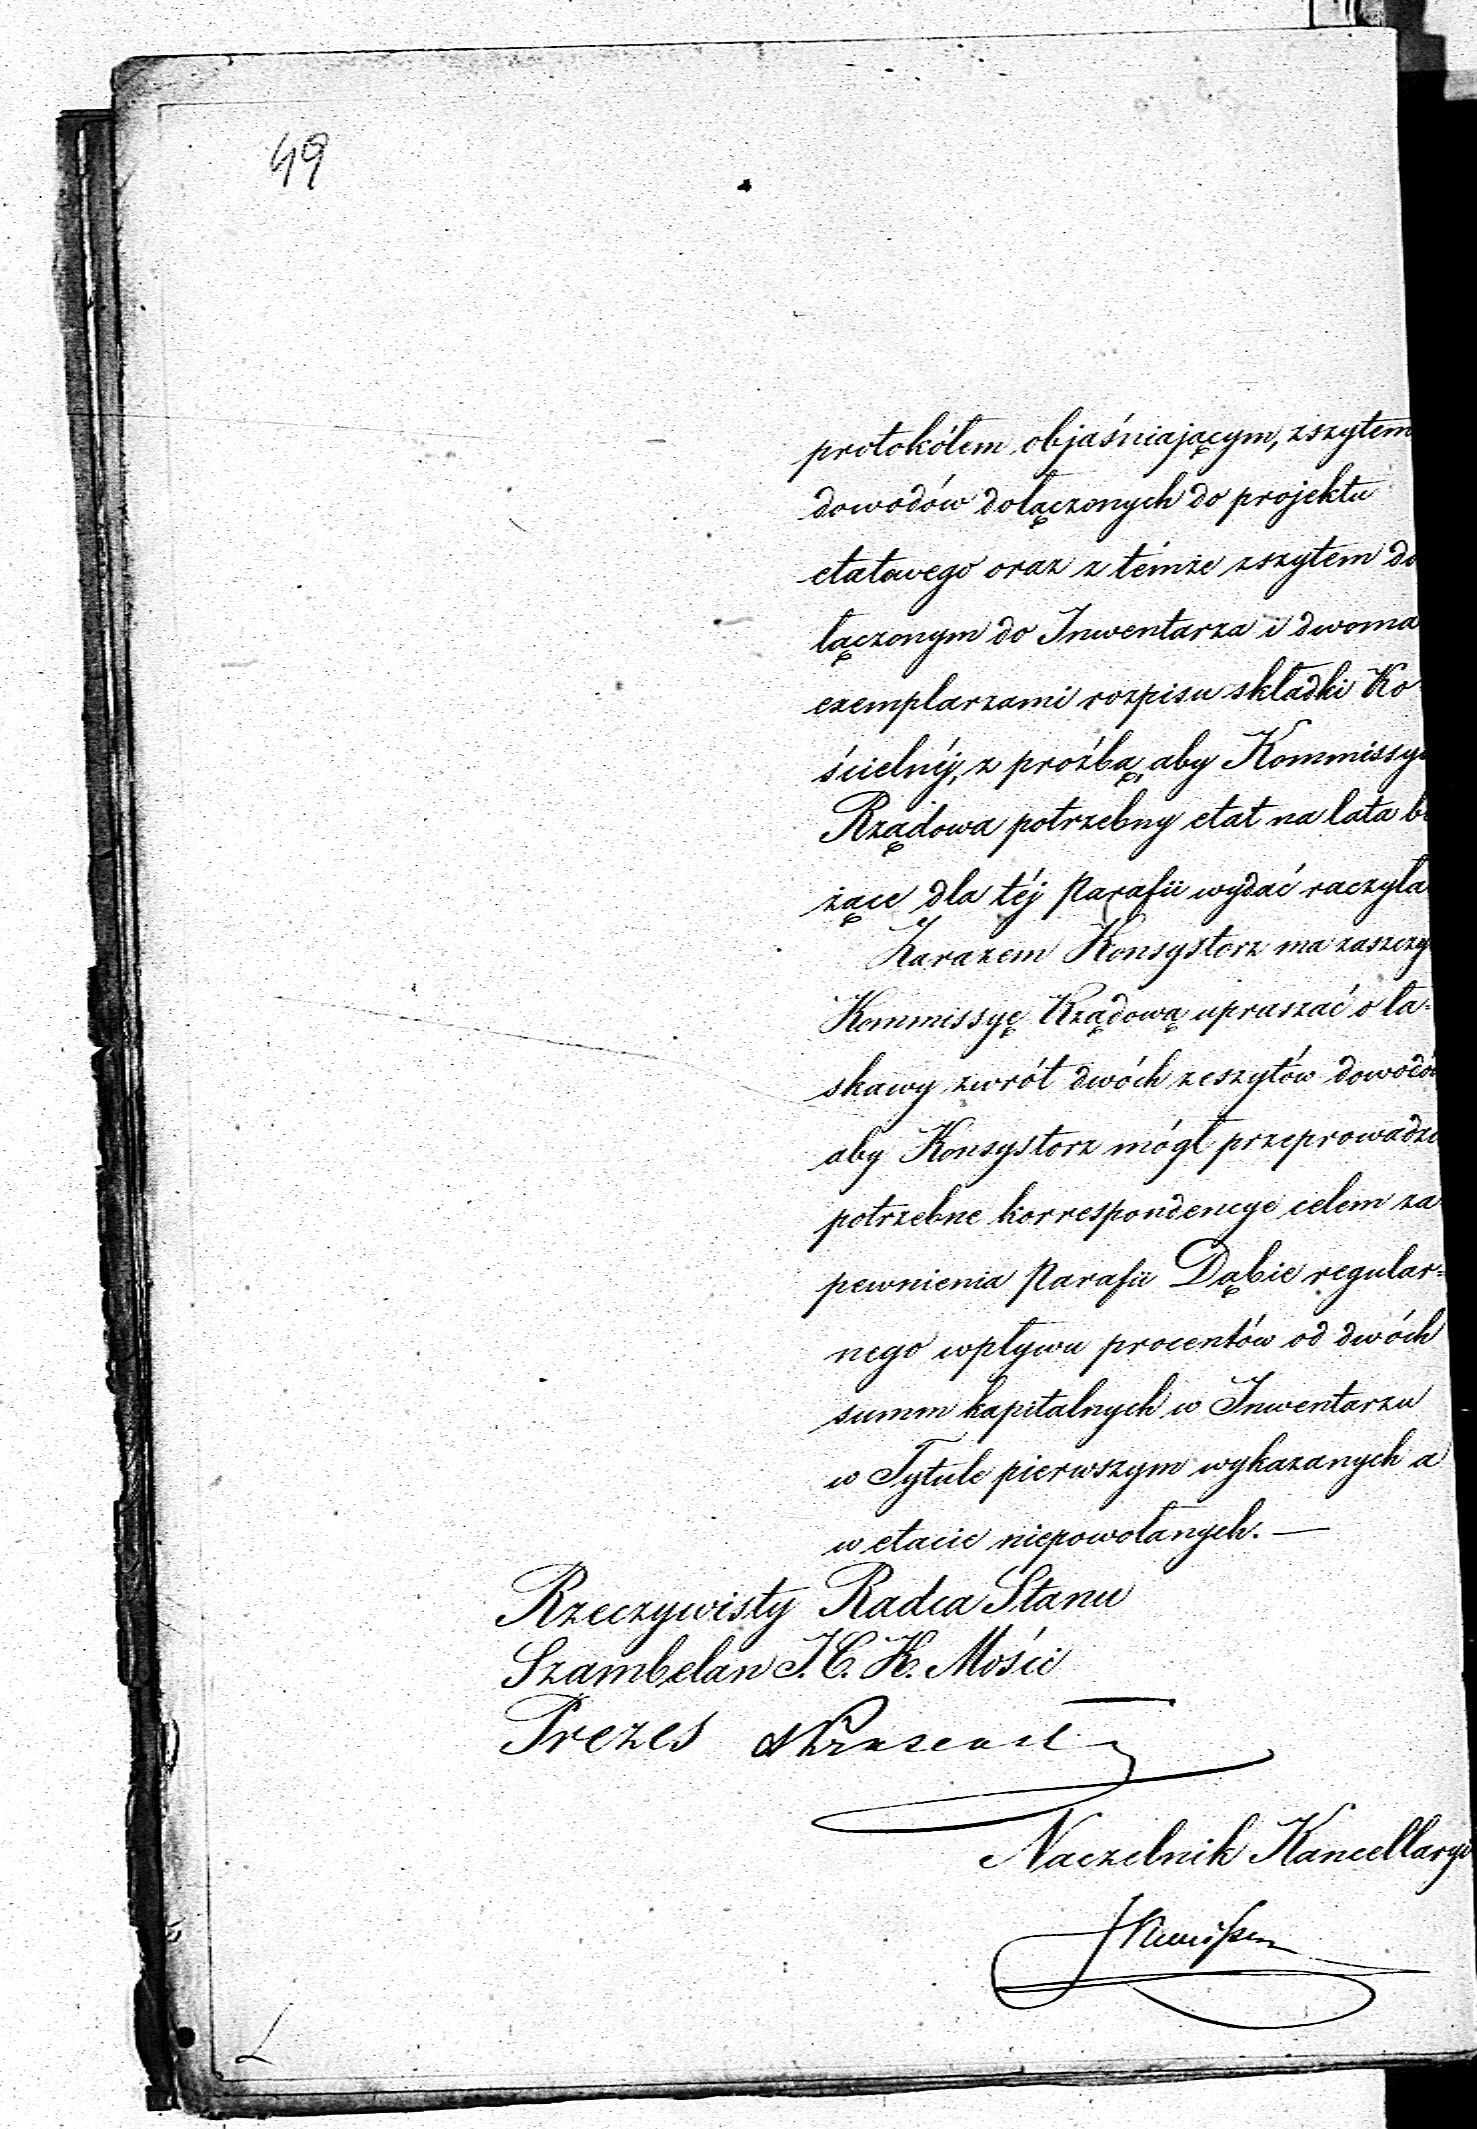 49
protokółem objaśniającym, zszytem
dowodów dołączonych do projektu
etatowego oraz z témże zszytem do
łączonym do Inwentarza i dwoma
exemplarzami rozpisu składki Ko-
ścielnéj, z prośbą, aby Kommissya
Rządowa potrzebny etat na lata bi
żące dla téj Parafii wydać raczyła
Zarazem Konsystorz ma zaszczy
Kommissyę Rządową upraszać o ła-
skawy zwrót dwóch zeszytów dowodów
aby Konsystorz mógł przeprowadzi
potrzebne korrespondencye celem za
pewnienia Parafii Dąbie regular-
nego wpływu procentów od dwóch
summ kapitalnych w Inwentarzu
w Tytule pierwszym wykazanych a
w etacie niepowołanych. —
Rzeczywisty Radca Stanu
Szambelan J. C. K. Mości
Prezes
Naczelnik Kancellaryi